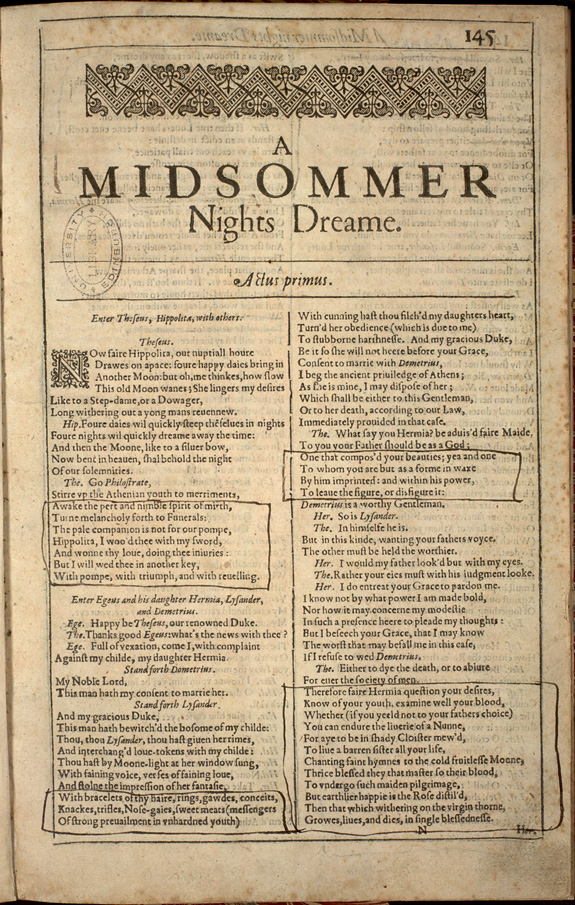 145
A
MIDSOMMER
Nights Dreame.
Actus primus.
Enter Theseus, Hippolita, with others.
Theseus.
NOw faire Hippolita, our nuptiall houre
Drawes on apace: foure happy daies bring in
Another Moon: but oh, me thinkes, how slow
This old Moon wanes; She lingers my desires
Like to a Step-dame, or a Dowager,
Long withering out a yong mans reuennew.
Hip. Foure daies wil quickly steep thẽselues in nights
Foure nights wil quickly dreame away the time:
And then the Moone, like to a siluer bow,
Now bent in heauen, shal behold the night
Of our solemnities.
The. Go Philostrate,
Stirre vp the Athenian youth to merriments,
Awake the pert and nimble spirit of mirth,
Turne melancholy forth to Funerals:
The pale companion is not for our pompe,
Hippolita, I woo'd thee with my sword,
And wonne thy loue, doing thee iniuries:
But I will wed thee in another key,
With pompe, with triumph, and with reuelling.
Enter Egeus and his daughter Hermia, Lysander,
and Demetrius.
Ege. Happy be Theseus, our renowned Duke.
The. Thanks good Egeus: what's the news with thee?
Ege. Full of vexation, come I, with complaint
Against my childe, my daughter Hermia.
Stand forth Demetrius.
My Noble Lord,
This man hath my consent to marrie her.
Stand forth Lysander.
And my gracious Duke,
This man hath bewitch'd the bosome of my childe:
Thou, thou Lysander, thou hast giuen her rimes,
And interchang'd loue-tokens with my childe:
Thou hast by Moone-light at her window sung,
With faining voice, verses of faining loue,
And stolne the impression of her fantasie,
With bracelets of thy haire, rings, gawdes, conceits,
Knackes, trifles, Nose-gaies, sweet meats (messengers
Of strong preuailment in vnhardned youth)
With cunning hast thou filch'd my daughters heart,
Turn'd her obedience (which is due to me)
To stubborne harshnesse. And my gracious Duke,
Be it so she will not heere before your Grace,
Consent to marrie with Demetrius,
I beg the ancient priuiledge of Athens;
As she is mine, I may dispose of her;
Which shall be either to this Gentleman,
Or to her death, according to our Law,
Immediately prouided in that case.
The. What say you Hermia? be aduis'd faire Maide,
To you your Father should be as a God;
One that compos'd your beauties; yea and one
To whom you are but as a forme in waxe
By him imprinted: and within his power,
To leaue the figure, or disfigure it:
Demetrius is a worthy Gentleman.
Her. So is Lysander.
The. In himselfe he is.
But in this kinde, wanting your fathers voyce.
The other must be held the worthier.
Her. I would my father look'd but with my eyes.
The. Rather your eies must with his iudgment looke.
Her. I do entreat your Grace to pardon me.
I know not by what power I am made bold,
Nor how it may concerne my modestie
In such a presence heere to pleade my thoughts:
But I beseech your Grace, that I may know
The worst that may befall me in this case,
If I refuse to wed Demetrius.
The. Either to dye the death, or to abiure
For euer the society of men.
Therefore faire Hermia question your desires,
Know of your youth, examine well your blood,
Whether (if you yeeld not to your fathers choice)
You can endure the liuerie of a Nunne,
For aye to be in shady Cloister mew'd,
To liue a barren sister all your life,
Chanting faint hymnes to the cold fruitlesse Moone,
Thrice blessed they that master so their blood,
To vndergo such maiden pilgrimage,
But earthlier happie is the Rose distil'd,
Then that which withering on the virgin thorne,
Growes, liues, and dies, in single blessednesse.
N
Her.